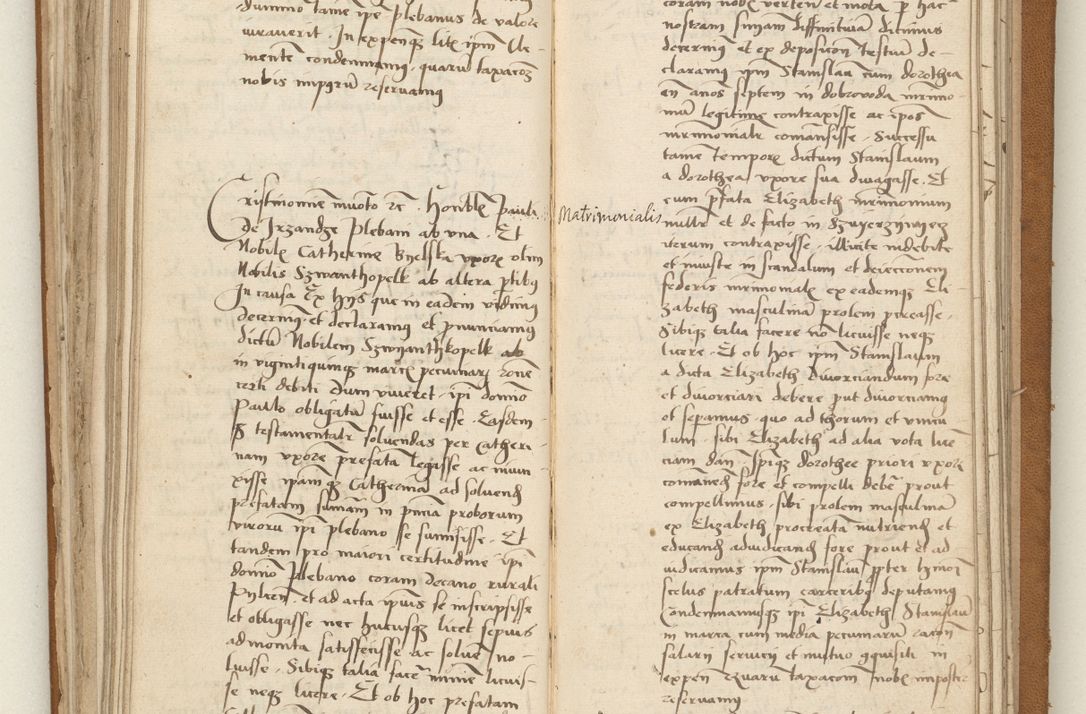 dummo tame ipe plebanus de valore
iuraverit. In expenſꝫ litꝭ ipm Cle-
mente condemnamꝰ. quarū taxacoꝫ
nobis impꝛū reservamꝰ
Cristi nomine invoto ꝛc. Honblꝫ Pauli
de Irzandze Plebani ab una. Et
Nobilꝫ Catherine Byelska uxorꝫ olim
Nobilis Szwanthopelk ab altera ꝑtibꝰ
In causa Ex hijs que in eadem vidimꝰ
decernimꝰ et declaramꝰ et ꝓnunciamꝰ
dictū Nobilem Szwyanthkopelk ab
in viginti quinqꝫ marcꝭ pecuniarꝫ rōne
certi debiti dum viveret. ipi domno
Paulo obligatū fuisse et esse. Easdem
testamentalr soluendas per Catheri-
nam uxorē prefata legasse ac iniun
xisse ipamqꝫ Catherinā ad soluend
prefatam sumam in pncia proborum
virorū ipi plebano se sumisisse. Et
tandem pro maiori certitudine ipi
domno Plebano coram Decano rurali
Pylcen. et ad acta ipius se inscripsisse
et obligasse nec hucusqꝫ licet sepius
admonita satisfecisse ac solue no-
luisse. Sibiqꝫ talia face minime licuis-
se neqꝫ licere. Et ob hoc prefatam
coram nobꝭ verten et mota ꝑ hac
nostram suniam diffinitivā dicimus
decernimꝰ et ex deposicon testiū de-
claramꝰ ipm Stanislau cum dorothea
an anos septem in dobrovoda mrimo-
niū legitime contraxisse ac ipos
mrimonialr comansisse. Successu
tame temporꝫ dictum Stanislaum
a dorothea uxore sua divagasse. Et
cum pfata Elizabeth mrimonium
Matrimonialis
nullr et de facto in
iterum contraxisse. illicite indebite
et iniuste in scandalum et deieccionem
federis mrimonialꝫ ex eademqꝫ Eli-
zabeth masculinā prolem pcreasse.
Sibiqꝫ talia facere nō licuisse neqꝫ
licere. Et ob hoc ipm Stanislaum
a dicta Elizabeth divorciandum fore
et divorciari debere put divorciamꝰ
et sepamus. quo ad thorum et vincu
lum. sibi Elizabeth ad alia vota licē
ciam dam. Ipiqꝫ dorothee priori uxori
comanend fore et compelli debē prout
compellimus. sibi prolem masculinā
ex Elizabeth procreatā nutriend et
educand adiudicand fore prout et ad
iudicamus ipm Stanislau ꝓpter hmoi
scelus patratum carceribꝰ deputamꝰ
Condemnamusqꝫ ipi Elizabeth Stanislaū
in marca cum media pecuniarū racōn
salarij servicij et mutuo ꝗquisiti in
expen Quarū taxacom nobꝭ imposter
reservamꝰ